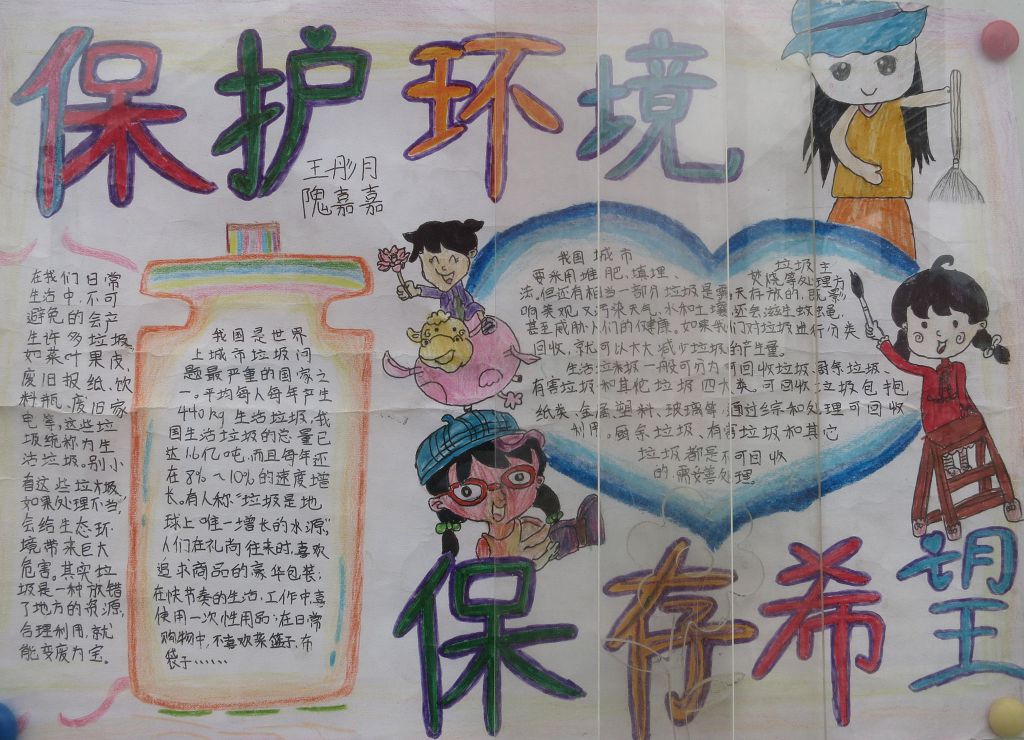 保护环境
王彤月
隗嘉嘉
在我们日常
生活中,不可
避免的会产
生许多垃圾,
如菜叶果皮,
废旧报纸、饮
料瓶、废旧家
电等,这些垃
圾统称为生
活垃圾。别小
看这些垃圾,
如果处理不当,
会给生态环
境带来巨大
危害。其实垃
圾是一种放错
了地方的资源,
合理利用,就
能变废为宝。
我国是世界
上城市垃圾问
题最严重的国家之
一。平均每人每年产生
440kg生活垃圾,我
国生活垃圾的总量已
达 亿吨,而且每年还
在8%~10%的速度增
长。有人称“垃圾是地
球上唯一增长的水源”,
人们在礼尚往来时,喜欢
追求商品的豪华包装;
在快节奏的生活、工作中,喜
使用一次性用品;在日常
购物中,不喜欢菜篮子、布
袋子……
我国城市 垃圾主
要采用堆肥、填埋、 焚烧等处理方
法,但还有相当一部分垃圾是露天存放的,既影
响美观,又污染大气、水和土壤,还会滋生蚊蝇,
甚至威胁人们的健康。如果我们对垃圾进行分类
回收,就可以大大减少垃圾的产生量。
生活垃圾一般可分为可回收垃圾、厨余垃圾、
有害垃圾和其他垃圾四大类。可回收垃圾包抱
纸类、金属、塑料、玻璃等,通过综和处理可回收
利用。厨余垃圾、有害垃圾和其它
垃圾都是不可回收
的,需妥善处理
保存希望